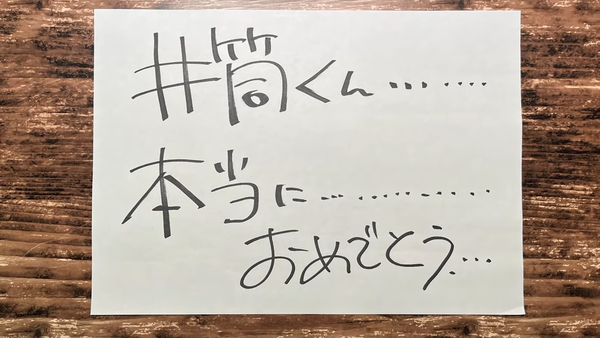 井筒くん………
本当に……………
おめでとう…